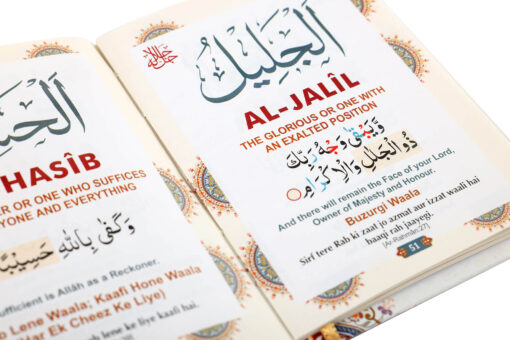 HASÎB
ER OR ONE WHO SUFFICES
YONE AND EVERYTHING
وَكَفٰى بِاللّٰهِ حَسِيْبًا
ufficient is Allâh as a Reckoner.
Lene Waala; Kaafi Hone Waala
Har Ek Cheez Ke Liye)
lene ke liye kaafi hai.
جل جلاله
اَلْجَلِيْلُ
AL-JALÎL
THE GLORIOUS OR ONE WITH
AN EXALTED POSITION
وَيَبْقٰى وَجْهُ رَبِّكَ
ذُو الْجَلٰلِ وَالْاِكْرَامِ
And there will remain the Face of your Lord,
Owner of Majesty and Honour.
Buzurgi Waala
Sirf tere Rab ki zaat jo azmat aur izzat waali hai
baaqi rah jaayegi.
[Ar-Rahmân:27]
51